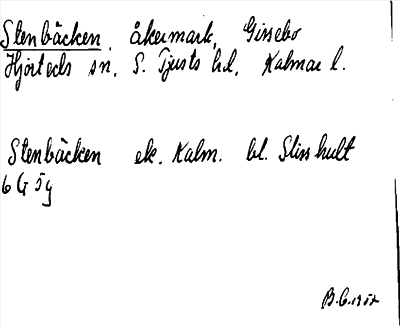 Stenbäcken, åkermark, Gissebo
Hjorteds sn, S. Tjusts hd, Kalmar l.
Stenbäcken ek. Kalm. bl. Slisshult
6 G 5g
B.G. 1957